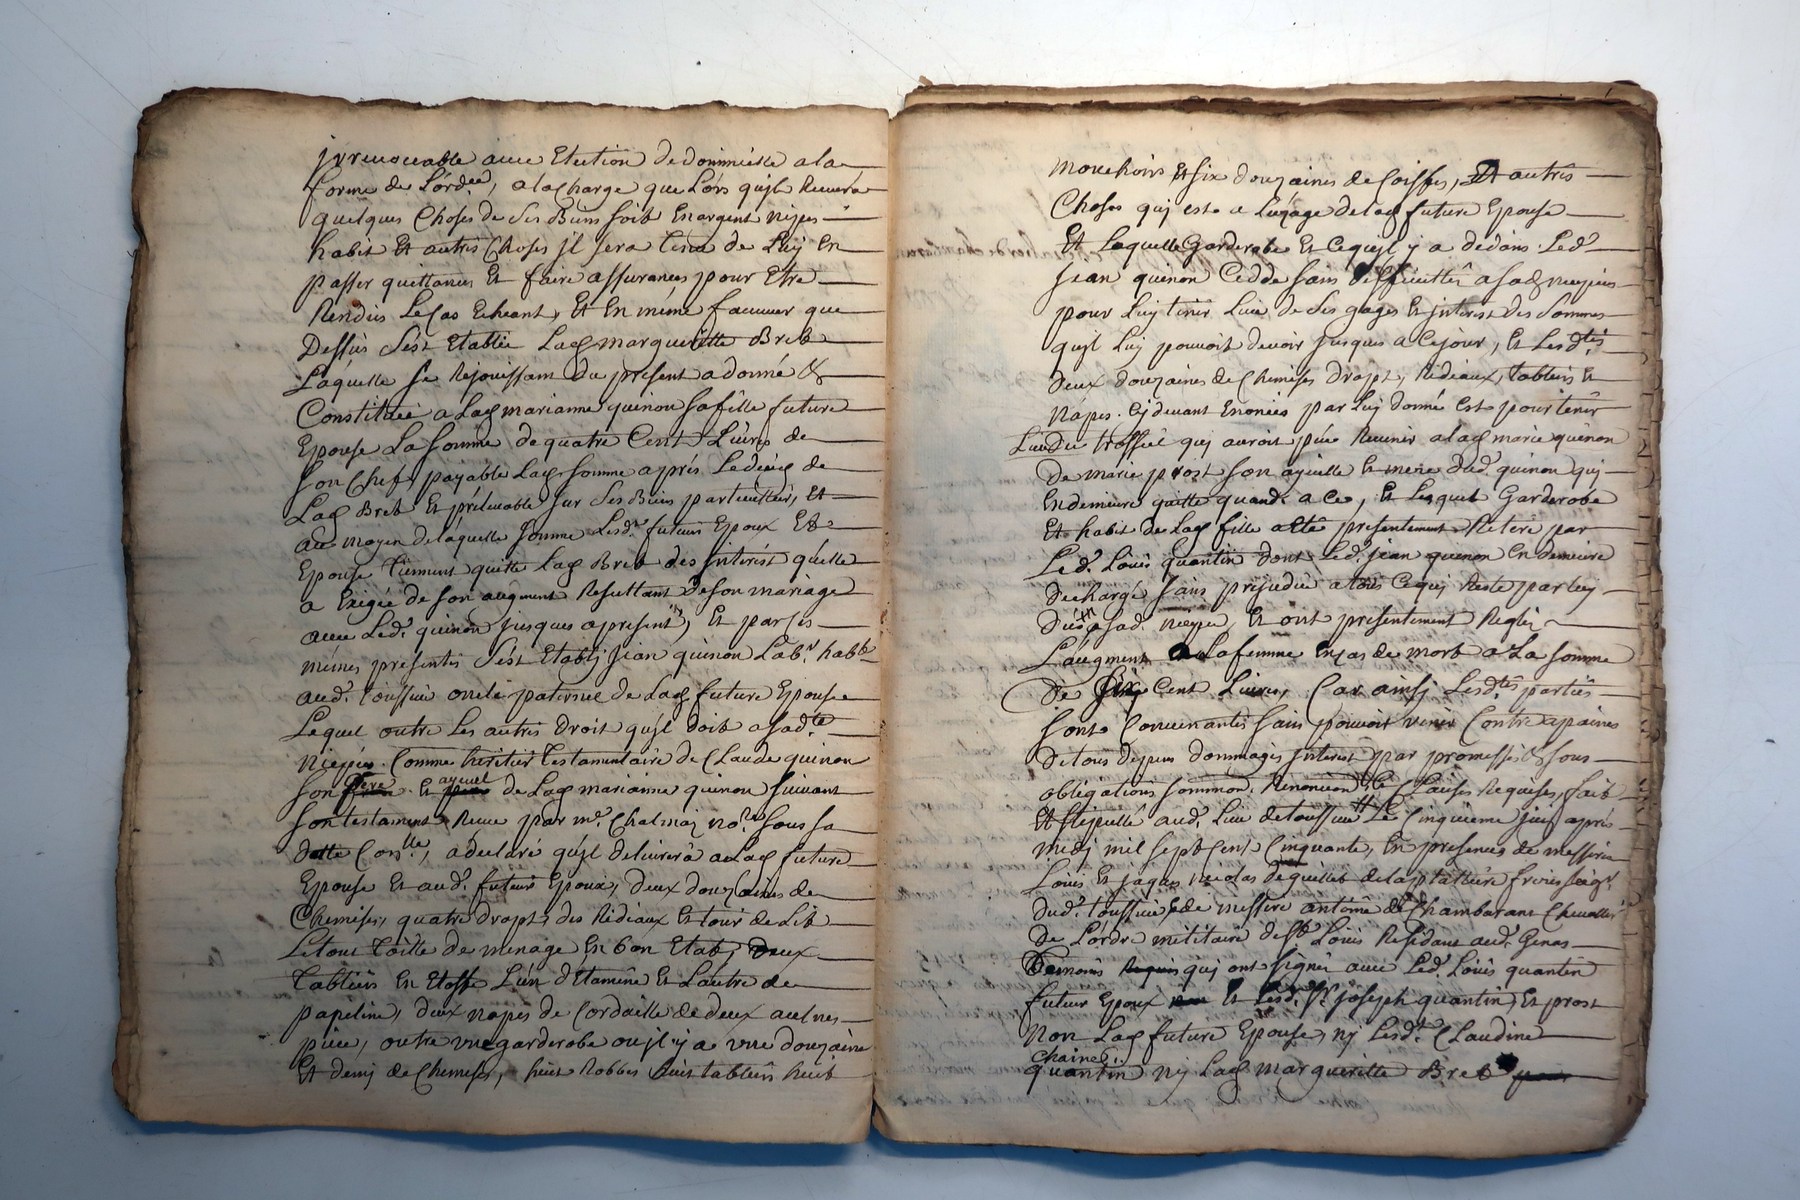 jrreuocable auec Election de dommicille a la
forme de L'ord.ce, a la Charge que Lors qujl Receura
quelques Choses de Ses Biens soit En argent nipes
habit Et autres Choses jl sera tenu de Luj En
passer quittances Et faire assurances pour Etre
Rendües Le Cas Echeant, Et En méme faueur que
Dessus S'est Etablie Lad margueritte Bret
Laquelle se Rejouissant du présent a donné &
Constitüée a Lad marianne quinon sa fille future
Epouse La somme de quatre Cent Liures de
son Chef, payable Lad somme aprés Le décés de
Lad Bret Et préleuable sur Ses Biens particulliers, Et
au moyen de laquelle somme Lesd. futurs Epoux Et
Epouse tiennent quitte Lad Bret des jntérést qu'elle
a Exigée de son augment Resultant de son mariage
auec Led. quinon jusques a present, Et par ses
mémes presentes S'ést Etablj Jean quinon Lab.r habt
aud. toussieu oncle paternel de Lad future Epouse
Lequel outre Les autres Droit qujl doit a sad.te
niepce. Comme héritier testamentaire de Claude quinon
son Pere Et ayeul de Lad marianne quinon suiuant
son testament Receu par m.e Chalmaj no.re sous sa
datte Con.lle, a declaré qu'jl deliurera a Lad future
Epouse Et aud. futur Epoux, deux douzaines de
Chemises, quatre drapt, des Rideaux Et tour de Lit
Le tout toille de ménage En bon Etat, Deux
tabliers En Etoffe L'un d'Etamine Et L'autre de
papeline, deux napes de Cordaille de deux aulnes
piece, outre vne garderobe ou jl y a vne douzaine
Et demj de Chemises, huit Robbes huit tabliers huit
mouchoirs Et six douzaines de Coiffes, Et autres
Choses quj est a L'uzage de lad future Epouse
Et Laquelle Garderobe Et Ce qujl y a dedans Led.
Jean quinon Cedde sans difficultée a sad niepce
pour Luj tenir Lieu de Ses gages Et jnterest des sommes
qujl Luj pouuoit deuoir jusques a Ce jour, Et Lesd.tes
deux douzaines de Chemises drapt, Rideaux, tabliers Et
Napes. Cj deuant Enoncés par Luj donné Est pour tenir
Lieu du trossel quj auroit püe Reuenir a lad marie quinon
De marie prost son ayeulle Et mere dud. quinon quj
En demeure quitte quand. a Ce, Et Lesquel Garderobe
Et habit de Lad fille a Etée presentement Retiré par
Led. Louis quantin dont Led. jean quinon En demeure
decharge sans prejudice a tous Ce quj Reste par luj
Dus a sad. niepce, Et ont presentement Reglée
L'augment a La femme En Cas de mort a La somme
De Six Cent Liures, Car ainsj Lesd.tes parties
sont Conuenantés sans pouuoir venir Contre a peines
De tous depens dommages jnterest par promesses & sous
obligations sommon. Renoncion Et Clauses Requises, fait
Et stipullé aud. Lieu de toussieu Le Cinquieme juin aprés
midj mil sept Cent Cinquante, En presences de messires
Loüis Et jaques nicolas de quillet de la platiere freres seigr
dud. toussieu & de messire antoine de Chambarant Cheuallier
De L'ordre militaire de St Louis Residant aud. Genas
temoins quj ont signés auec Led. Loüis quantin
futur Epoux Et Lesd. Sr. joseph quantin Et prost
Non Lad future Epouse, nj Lesd. Claudine
Chaine
quantin nj Lad margueritte Bret